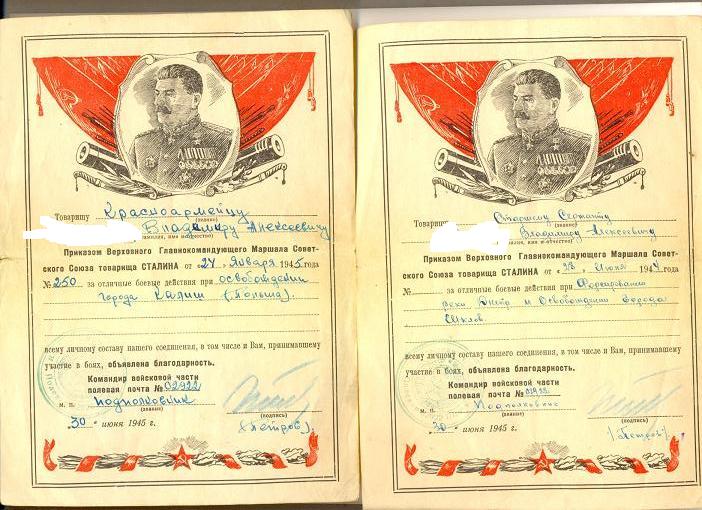 Товарищу Красноармейцу
(звание)
Владимиру Алексеевичу
(фамилия, имя и отчество)
Приказом Верховного Главнокомандующего Маршала Совет-
ского Союза товарища СТАЛИНА от «24» Января 1945 года
№ 250 за отличные боевые действия при освобождении
города Калиш (Польша).
всему личному составу нашего соединения, в том числе и Вам, принимавшему
участие в боях, объявлена благодарность.
Командир войсковой части
полевая почта № 02922
м. п. подполковник
(звание) (подпись)
«30» июня 1945 г. (Петров)
Товарищу Старшему Сержанту
(звание)
Владимиру Алексеевичу
(фамилия, имя и отчество)
Приказом Верховного Главнокомандующего Маршала Совет-
ского Союза товарища СТАЛИНА от Июня 194 года
№ за отличные боевые действия при Форсировании
реки Днепр и Освобождении города
Шклов.
всему личному составу нашего соединения, в том числе и Вам, принимавшему
участие в боях, объявлена благодарность.
Командир войсковой части
полевая почта № 02922
м. п. Подполковник
(звание) (подпись)
«30» июня 1945 г. /Петров/